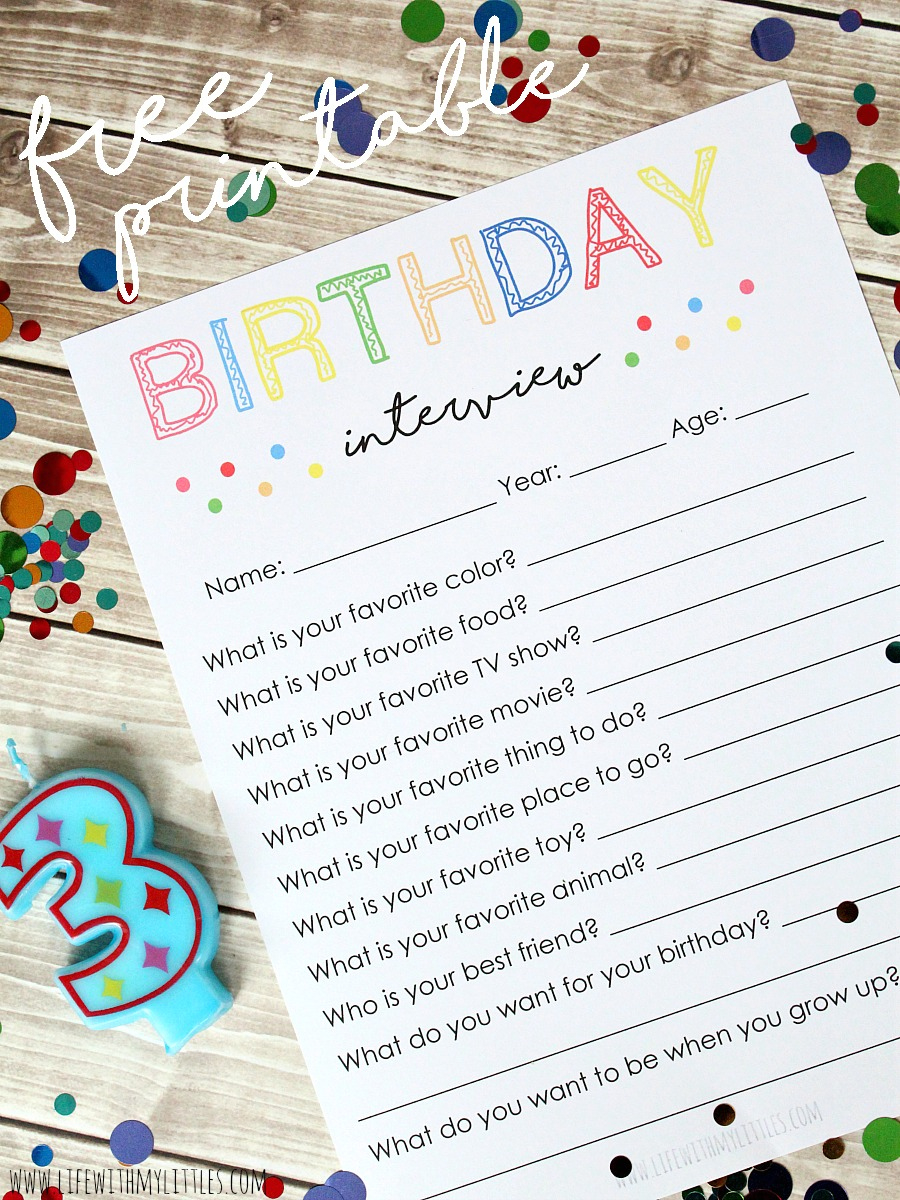 free
printable
BIRTHDAY
interview
Name: Year: Age:
What is your favorite color?
What is your favorite food?
What is your favorite TV show?
What is your favorite movie?
What is your favorite thing to do?
What is your favorite place to go?
What is your favorite toy?
What is your favorite animal?
Who is your best friend?
What do you want for your birthday?
What do you want to be when you grow up?
WWW.LIFEWITHMYLITTLES.COM
WWW.LIFEWITHMYLITTLES.COM
3